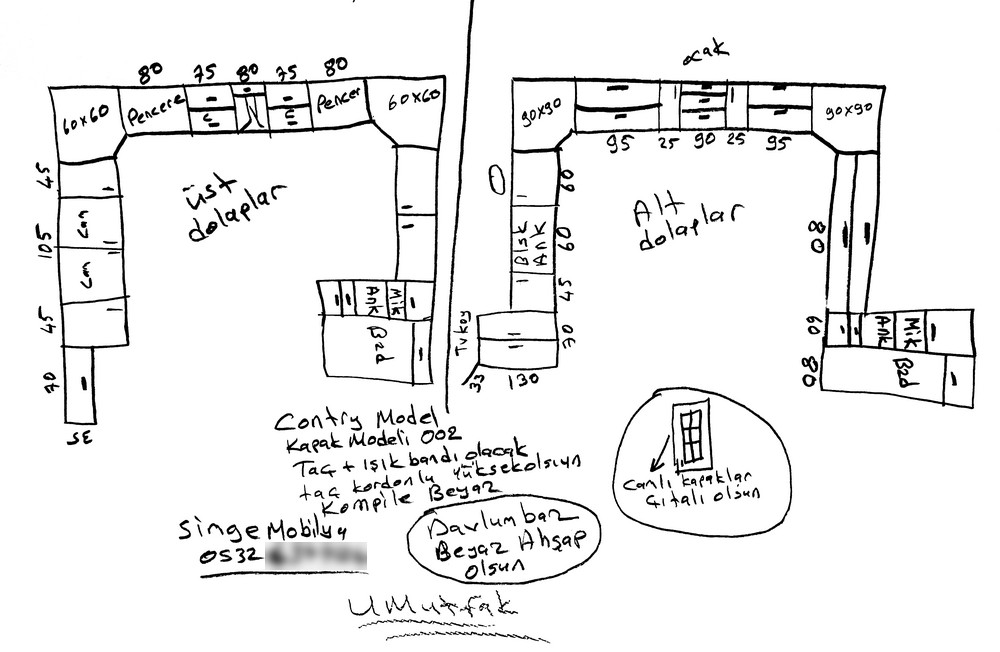 80 75 80 75 80
60x60
Pencere
Pencer
60x60
45
105
45
70
35
Cam
Cam
üst
dolaplar
Ank
Mik
Bzd
ocak
90x90
90x90
95 25 90 25 95
60
60
45
30
Blşk
Ank
Tvkoy
33
130
Alt
dolaplar
80
60
80
Ank
Mik
Bzd
Contry Model
Kapak Modeli 002
Taç + Işık bandı olacak
taç kordonlu yüksek olsun
Komple Beyaz
Singe Mobilya
0532
Davlumbaz
Beyaz Ahşap
olsun
Camlı kapaklar
Çıtalı olsun